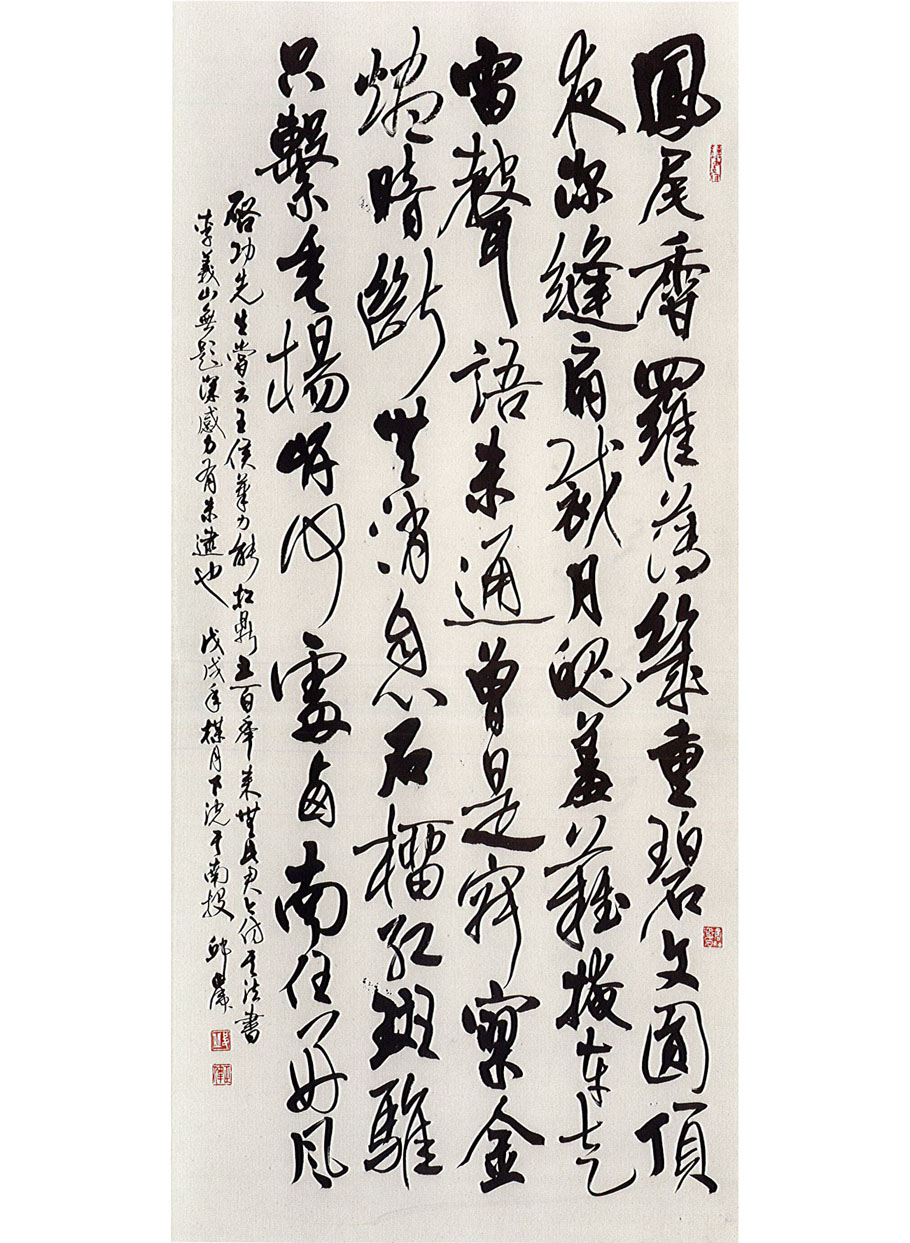 鳳尾香羅薄幾重碧文圓頂
夜深縫扇裁月魄羞難掩車走
雷聲語未通曾是寂寥金
燼暗斷無消息石榴紅斑騅
只繫垂楊岸何處西南任好風
啓功先生嘗云王侯筆力能扛鼎五百年來無此君今仿其法書
李義山無題深感力有未逮也 戊戌年楳月下浣于南投 邱